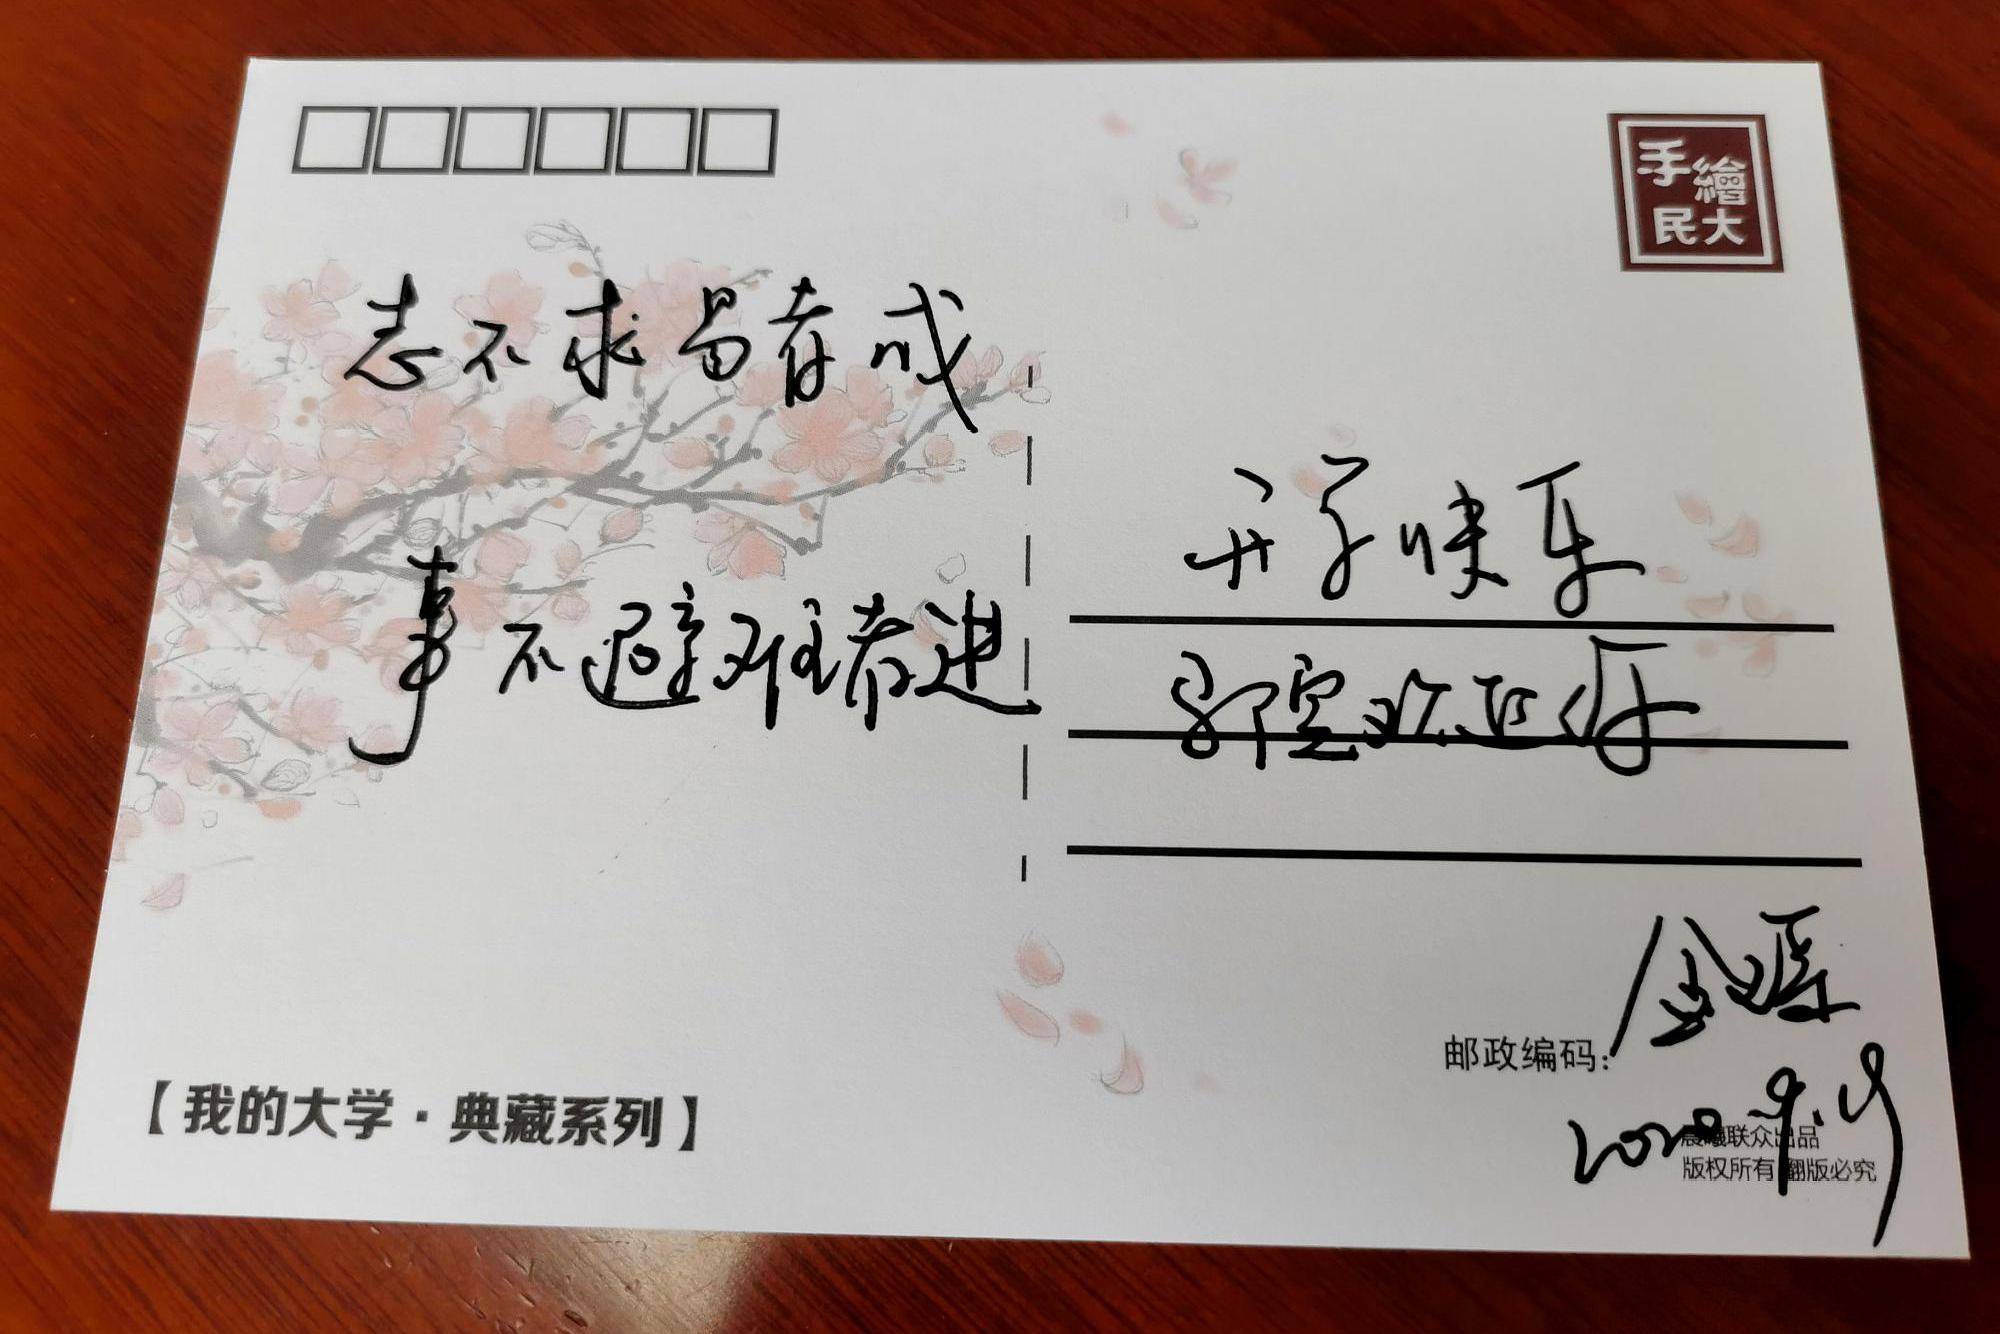 手繪
民大
志不求易者成
事不避难者进
开学快乐
邮政编码:
2020.9.19
【我的大学·典藏系列】
晨曦联众出品
版权所有 翻版必究